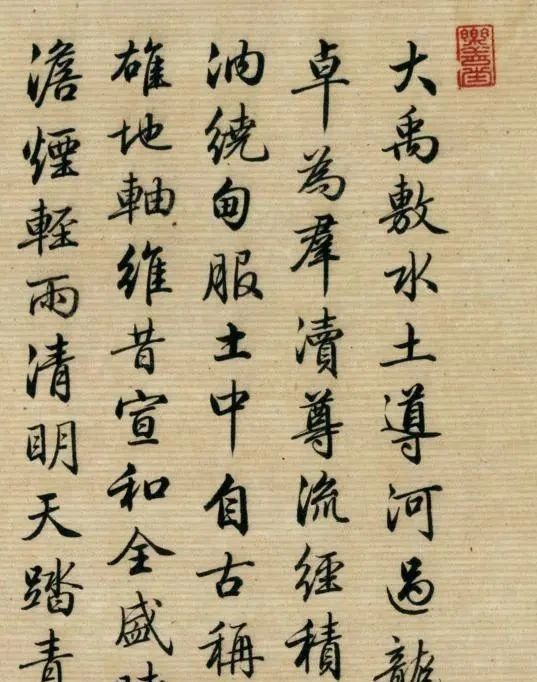 大禹敷水土導河過龍
卓為羣瀆尊流經積
汭繞甸服土中自古稱
雄地軸維昔宣和全盛時
澹煙輕雨清明天踏青